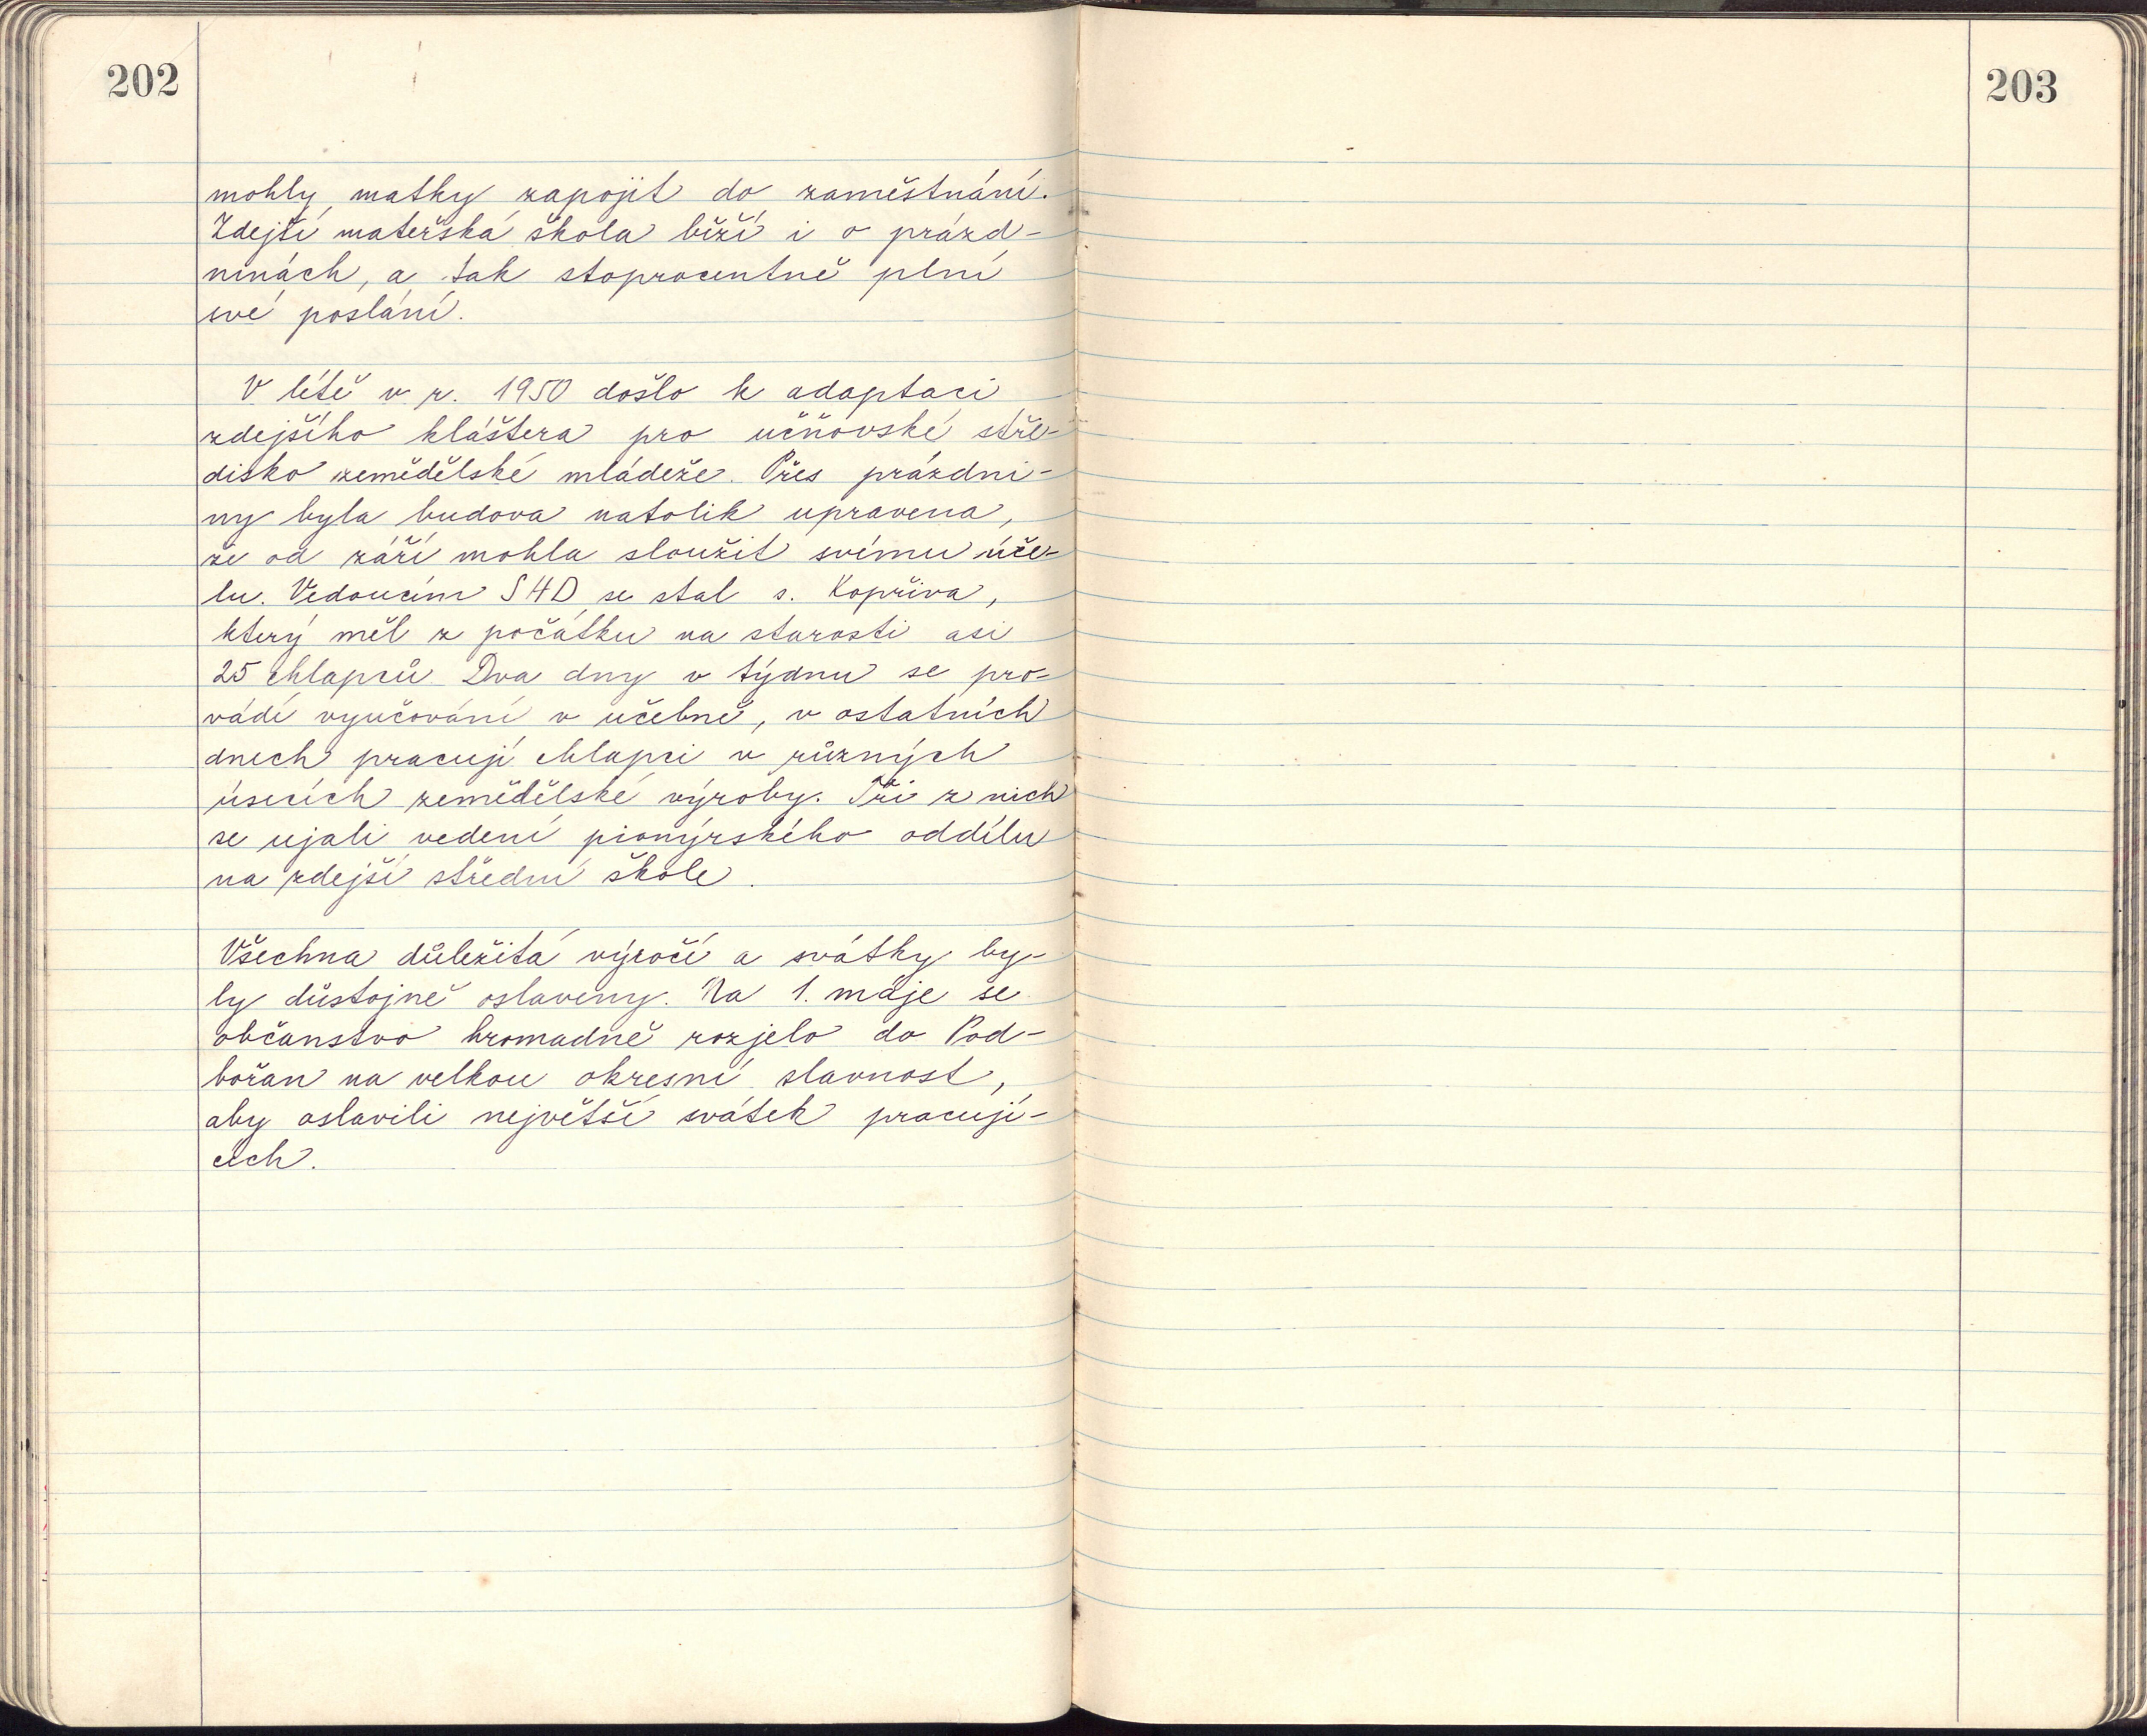 202
mohly matky zapojit do zaměstnání.
Zdejší mateřská škola běží i o prázd-
ninách, a tak stoprocentně plní
své poslání.
V létě v r. 1950 došlo k adaptaci
zdejšího kláštera pro učňovské stře-
disko zemědělské mládeže. Přes prázdni-
ny byla budova natolik upravena,
že od září mohla sloužit svému úče-
lu. Vedoucím SHD se stal s. Kopřiva,
který měl z počátku na starosti asi
25 chlapců. Dva dny v týdnu se pro-
vádí vyučování v učebně, v ostatních
dnech pracují chlapci v různých
úsecích zemědělské výroby. Tři z nich
se ujali vedení pionýrského oddílu
na zdejší střední škole.
Všechna důležitá výročí a svátky by-
ly důstojně oslaveny. Na 1. máje se
občanstvo hromadně rozjelo do Pod-
bořan na velkou okresní slavnost,
aby oslavili největší svátek pracují-
cích.
203